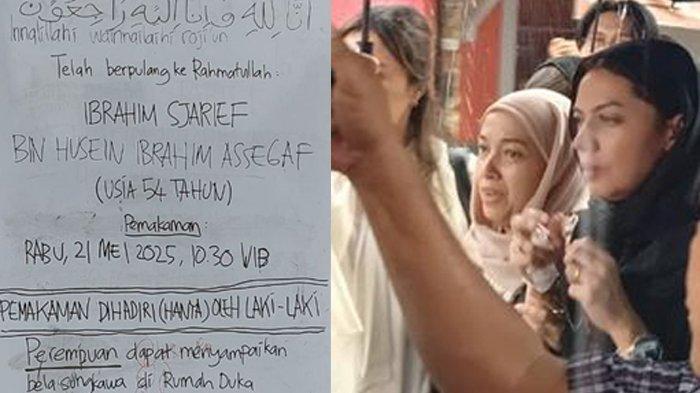 إنّا للهِ وَإِنَّا إِلَيْهِ رَاجِعُوْنَ
Innalillahi wainnailaihi roji'un
Telah berpulang ke Rahmatullah :
IBRAHIM SJARIEF
BIN HUSEIN IBRAHIM ASSEGAF
(USIA 54 TAHUN)
Pemakaman :
RABU, 21 MEI 2025, 10.30 WIB
PEMAKAMAN DIHADIRI (HANYA) OLEH LAKI-LAKI
Perempuan dapat menyampaikan
bela sungkawa di Rumah Duka